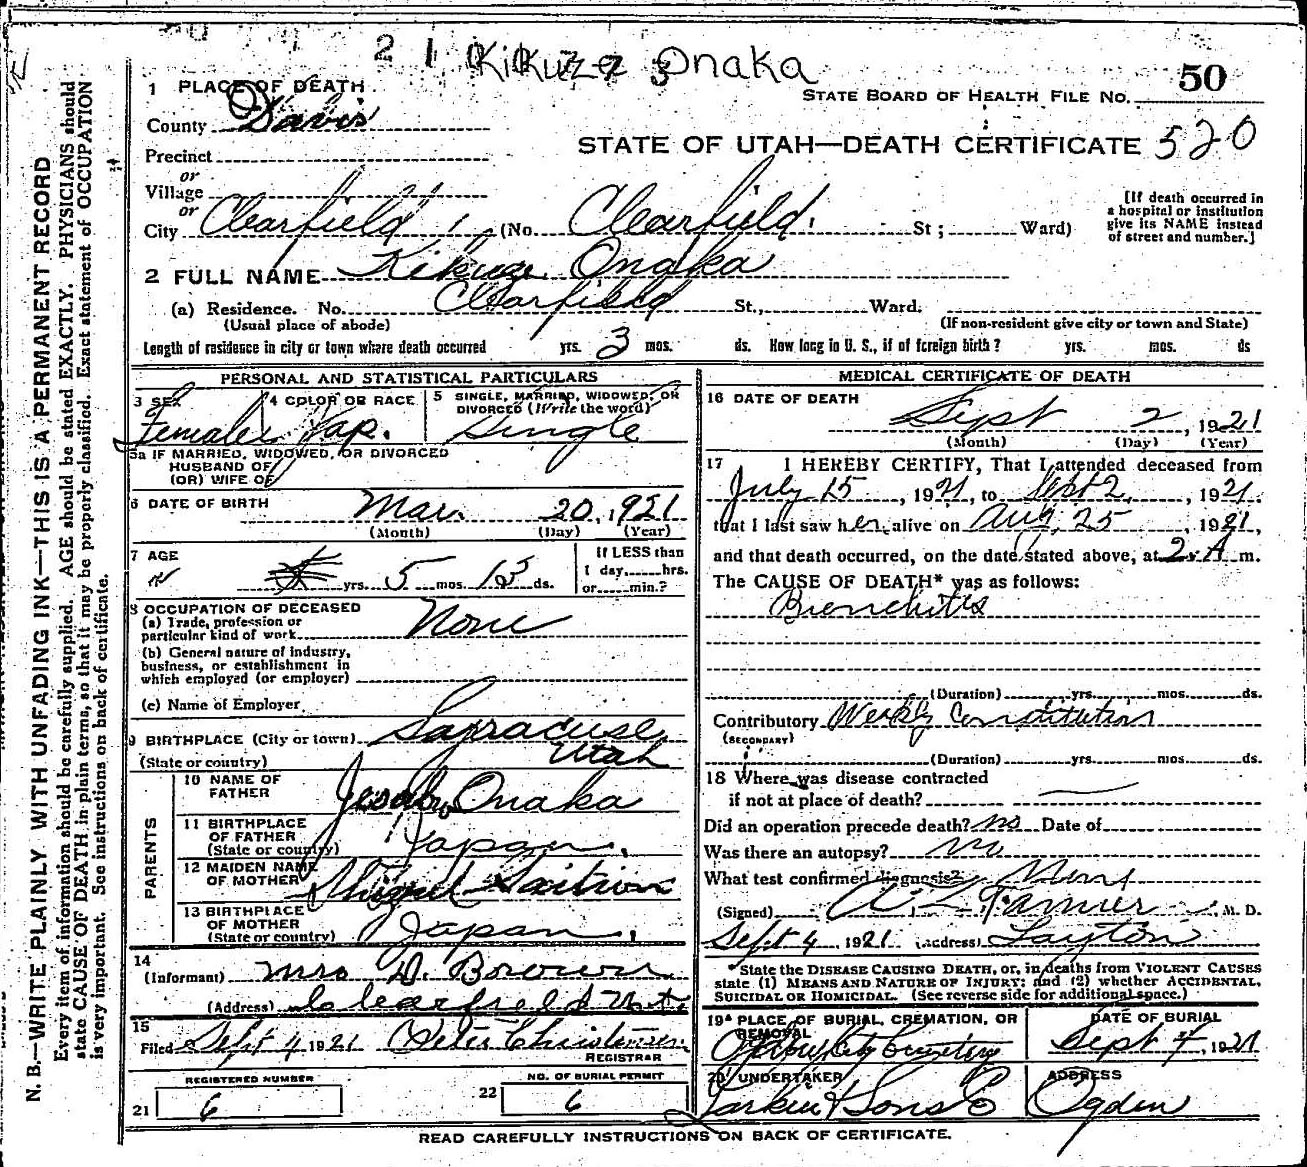 2 1 Kikuze Onaka
1 PLACE OF DEATH
STATE BOARD OF HEALTH FILE NO. 50
County Davis
STATE OF UTAH—DEATH CERTIFICATE 520
Precinct
or
Village
or
City Clearfield (No. Clearfield St ; Ward)
[If death occurred in
a hospital or institution
give its NAME instead
of street and number.]
2 FULL NAME Kikuze Onaka
(a) Residence. No. Clearfield St., Ward.
(Usual place of abode) (If non-resident give city or town and State)
Length of residence in city or town where death occurred yrs. 3 mos. ds. How long in U. S., if of foreign birth? yrs. mos. ds
PERSONAL AND STATISTICAL PARTICULARS
3 SEX 4 COLOR OR RACE 5 SINGLE, MARRIED, WIDOWED, OR
DIVORCED (Write the word)
Female Jap. Single
5a IF MARRIED, WIDOWED, OR DIVORCED
HUSBAND OF
(OR) WIFE OF
6 DATE OF BIRTH Mar. 20, 1921
(Month) (Day) (Year)
7 AGE If LESS than
yrs. 5 mos. 13 ds. 1 day, hrs.
or min.?
8 OCCUPATION OF DECEASED
(a) Trade, profession or
particular kind of work None
(b) General nature of industry,
business, or establishment in
which employed (or employer)
(c) Name of Employer
9 BIRTHPLACE (City or town) Sayracuse
(State or country) Utah
PARENTS
10 NAME OF
FATHER Onaka
11 BIRTHPLACE
OF FATHER
(State or country) Japan.
12 MAIDEN NAME
OF MOTHER
13 BIRTHPLACE
OF MOTHER
(State or country) Japan.
14
(Informant) Mrs D. Brown
(Address) Clearfield Utah
15
Filed Sept 4 1921 Peter Christensen
REGISTRAR
REGISTERED NUMBER
21 6
NO. OF BURIAL PERMIT
22 6
MEDICAL CERTIFICATE OF DEATH
16 DATE OF DEATH
Sept 2, 1921
(Month) (Day) (Year)
17 I HEREBY CERTIFY, That I attended deceased from
July 15, 1921, to Sept 2, 1921.
that I last saw her alive on Aug. 25, 1921,
and that death occurred, on the date stated above, at 2 A m.
The CAUSE OF DEATH* was as follows:
Bronchitis
(Duration) yrs. mos. ds.
Contributory Weakly Constitution
(SECONDARY)
(Duration) yrs. mos. ds.
18 Where was disease contracted
if not at place of death?
Did an operation precede death? no Date of
Was there an autopsy? no
What test confirmed diagnosis? None
(Signed) A. L. Tanner, M. D.
Sept 4 1921 (Address) Layton
*State the DISEASE CAUSING DEATH, or, in deaths from VIOLENT CAUSES
state (1) MEANS AND NATURE OF INJURY; and (2) whether ACCIDENTAL,
SUICIDAL OR HOMICIDAL. (See reverse side for additional space.)
19* PLACE OF BURIAL, CREMATION, OR
REMOVAL
DATE OF BURIAL
Ogden City Cemetery Sept 4, 1921
20 UNDERTAKER ADDRESS
Larkin & Sons Co Ogden
READ CAREFULLY INSTRUCTIONS ON BACK OF CERTIFICATE.
N. B.—WRITE PLAINLY WITH UNFADING INK—THIS IS A PERMANENT RECORD
Every item of information should be carefully supplied. AGE should be stated EXACTLY. PHYSICIANS should
state CAUSE OF DEATH in plain terms, so that it may be properly classified. Exact statement of OCCUPATION
is very important. See instructions on back of certificate.